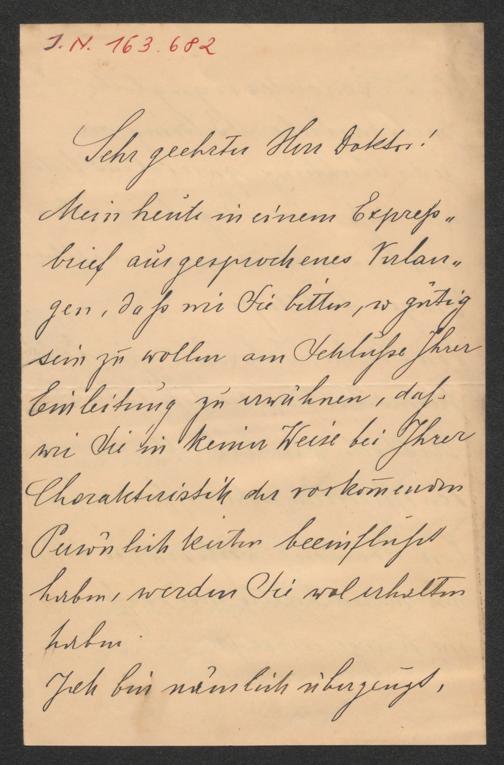 J. N. 163.682
Sehr geehrter Herr Doktor!
Mein heute in einem Expreß„
brief ausgesprochenes Verlan„
gen, daß wir Sie bitten, so gütig
sein zu wollen am Schluße Ihrer
Einleitung zu erwähnen, daß
wir Sie in keiner Weise bei Ihrer
Charakteristik der vorkom̅enden
Persönlichkeiten beeinflußt
haben, werden Sie wol erhalten
haben.
Ich bin nämlich überzeugt,